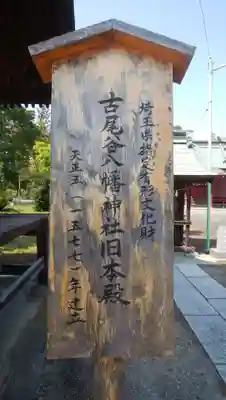 埼玉県指定有形文化財
古尾谷八幡神社旧本殿
天正五（一五七七）年建立